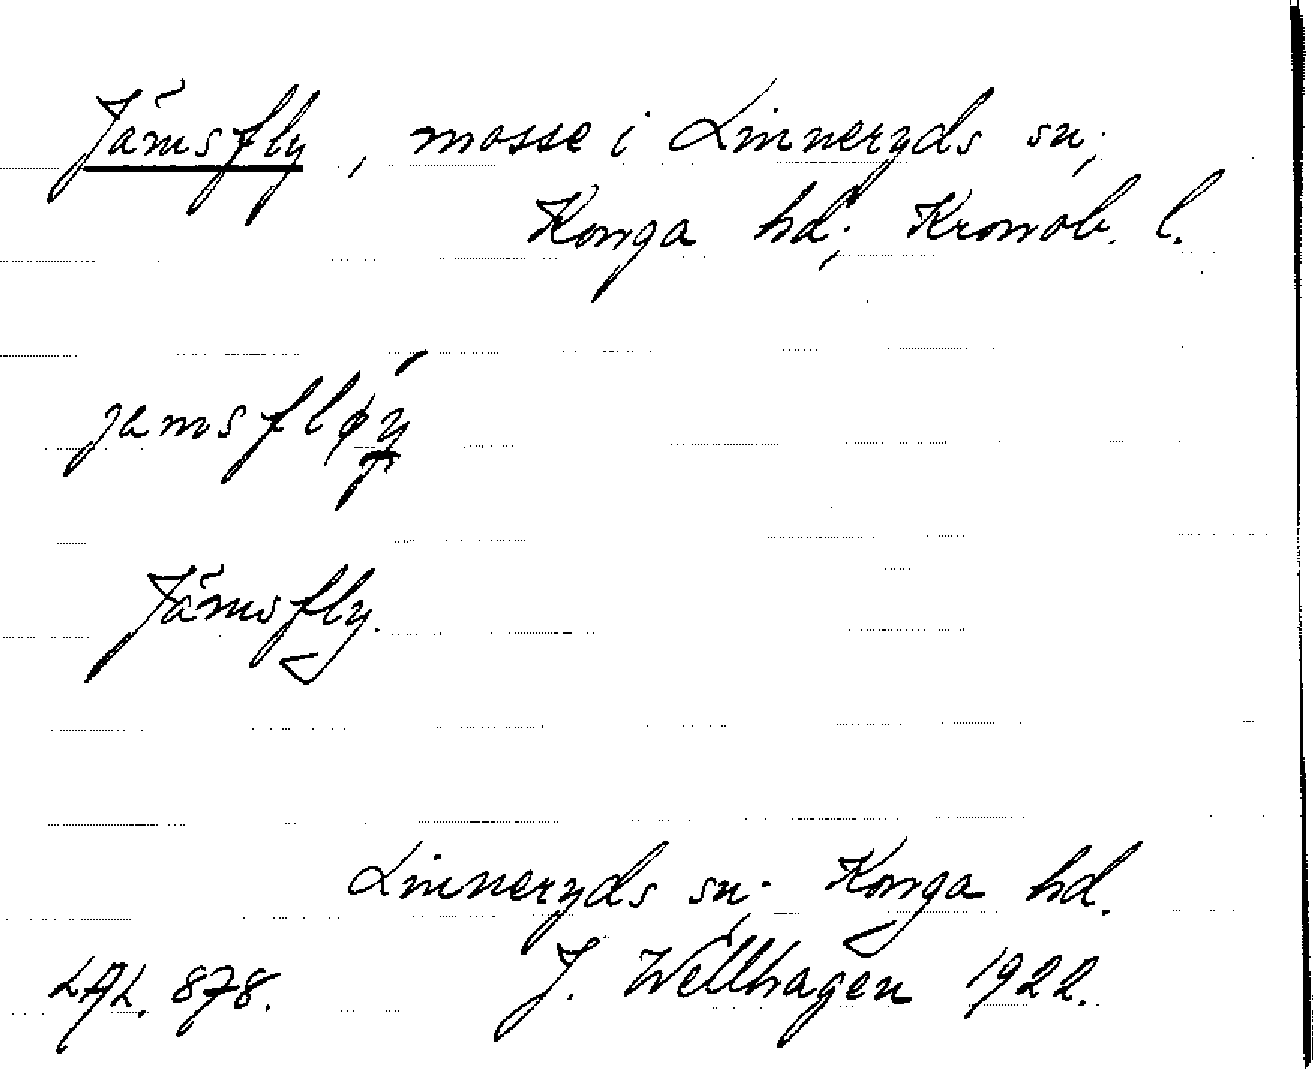 Jämsfly, mosse i Linneryds sn;
Konga hd; Kronob. l.
jamsfløy
Jämsfly.
Linneryds sn; Konga hd.
LAL. 878. J. Wellhagen 1922.